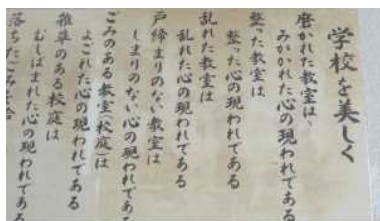 学校を美しく
磨かれた教室は、
みがかれた心の現われである
整った教室は
整った心の現われである
乱れた教室は
乱れた心の現われである
戸締まりのない教室は
しまりのない心の現われである
ごみのある教室(校庭)は
よごれた心の現われである
雑草のある校庭は
むしばまれた心の現われである
落ちたごみを